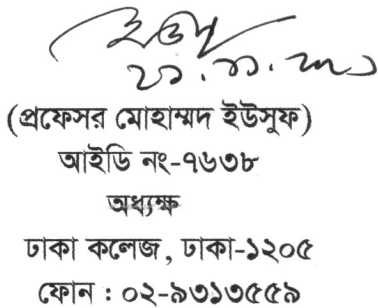 (প্রফেসর মোহাম্মদ ইউসুফ)
আইডি নং-৭৬৩৮
অধ্যক্ষ
ঢাকা কলেজ, ঢাকা-১২০৫
ফোন : ০২-৯৩১৩৫৫৯